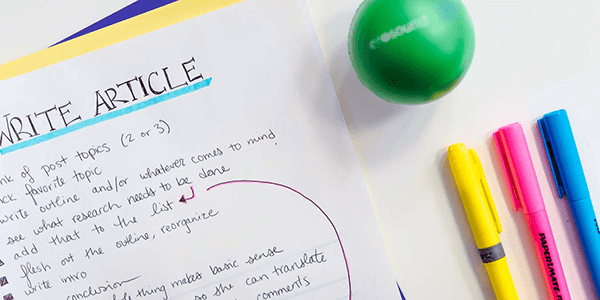 WRITE ARTICLE
of post topics (2 or 3)
favorite topic
write outline and/or whatever comes to mind
see what research needs to be done
add that to the list
flesh out the outline, reorganize
write intro
conclusion
thing makes basic sense
so she can translate
comments
PAPERMATE